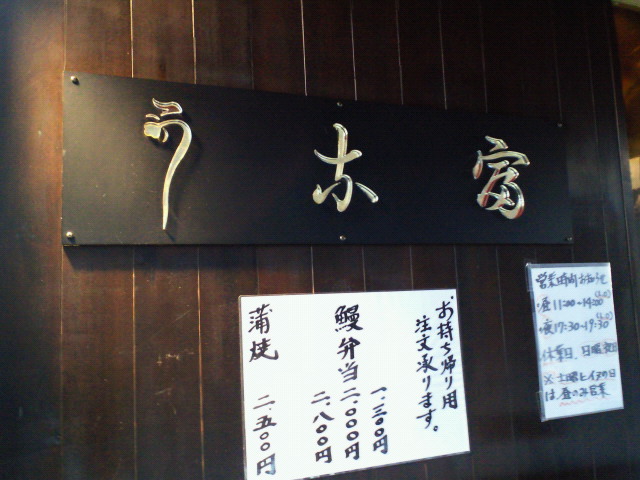 うな富
お持ち帰り用
注文承ります。
一、三〇〇円
鰻弁当 二、〇〇〇円
二、八〇〇円
蒲焼 二、五〇〇円
営業時間お知らせ
・昼11:00~14:00
・夜17:30~19:30
休業日、日曜祝日
※土曜とイヌの日
は昼のみ営業